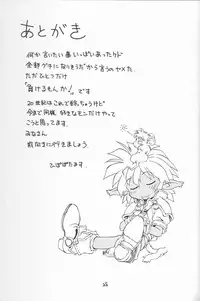 あとがき
何か言いたい事いっぱいあったけど
全部グチになりそうだから言うのヤメた。
ただひとつだけ
「負けるもんか」です
20世紀はこれで終っちゃうけど
今まで同様 好きなモンだけやって
こうと思ってます。
みなさん
前向きに行きましょう。
ひばばたます